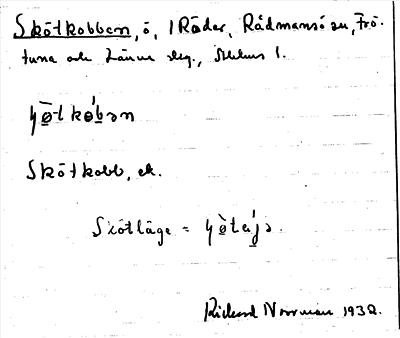 Skötkobben, ö, 1 Räder, Rådmansö sn, Frö-
tuna och Länna slg., Sthlms l.
Skötkobb, ek.
Skötläge =
Rickard Norrman 1932.